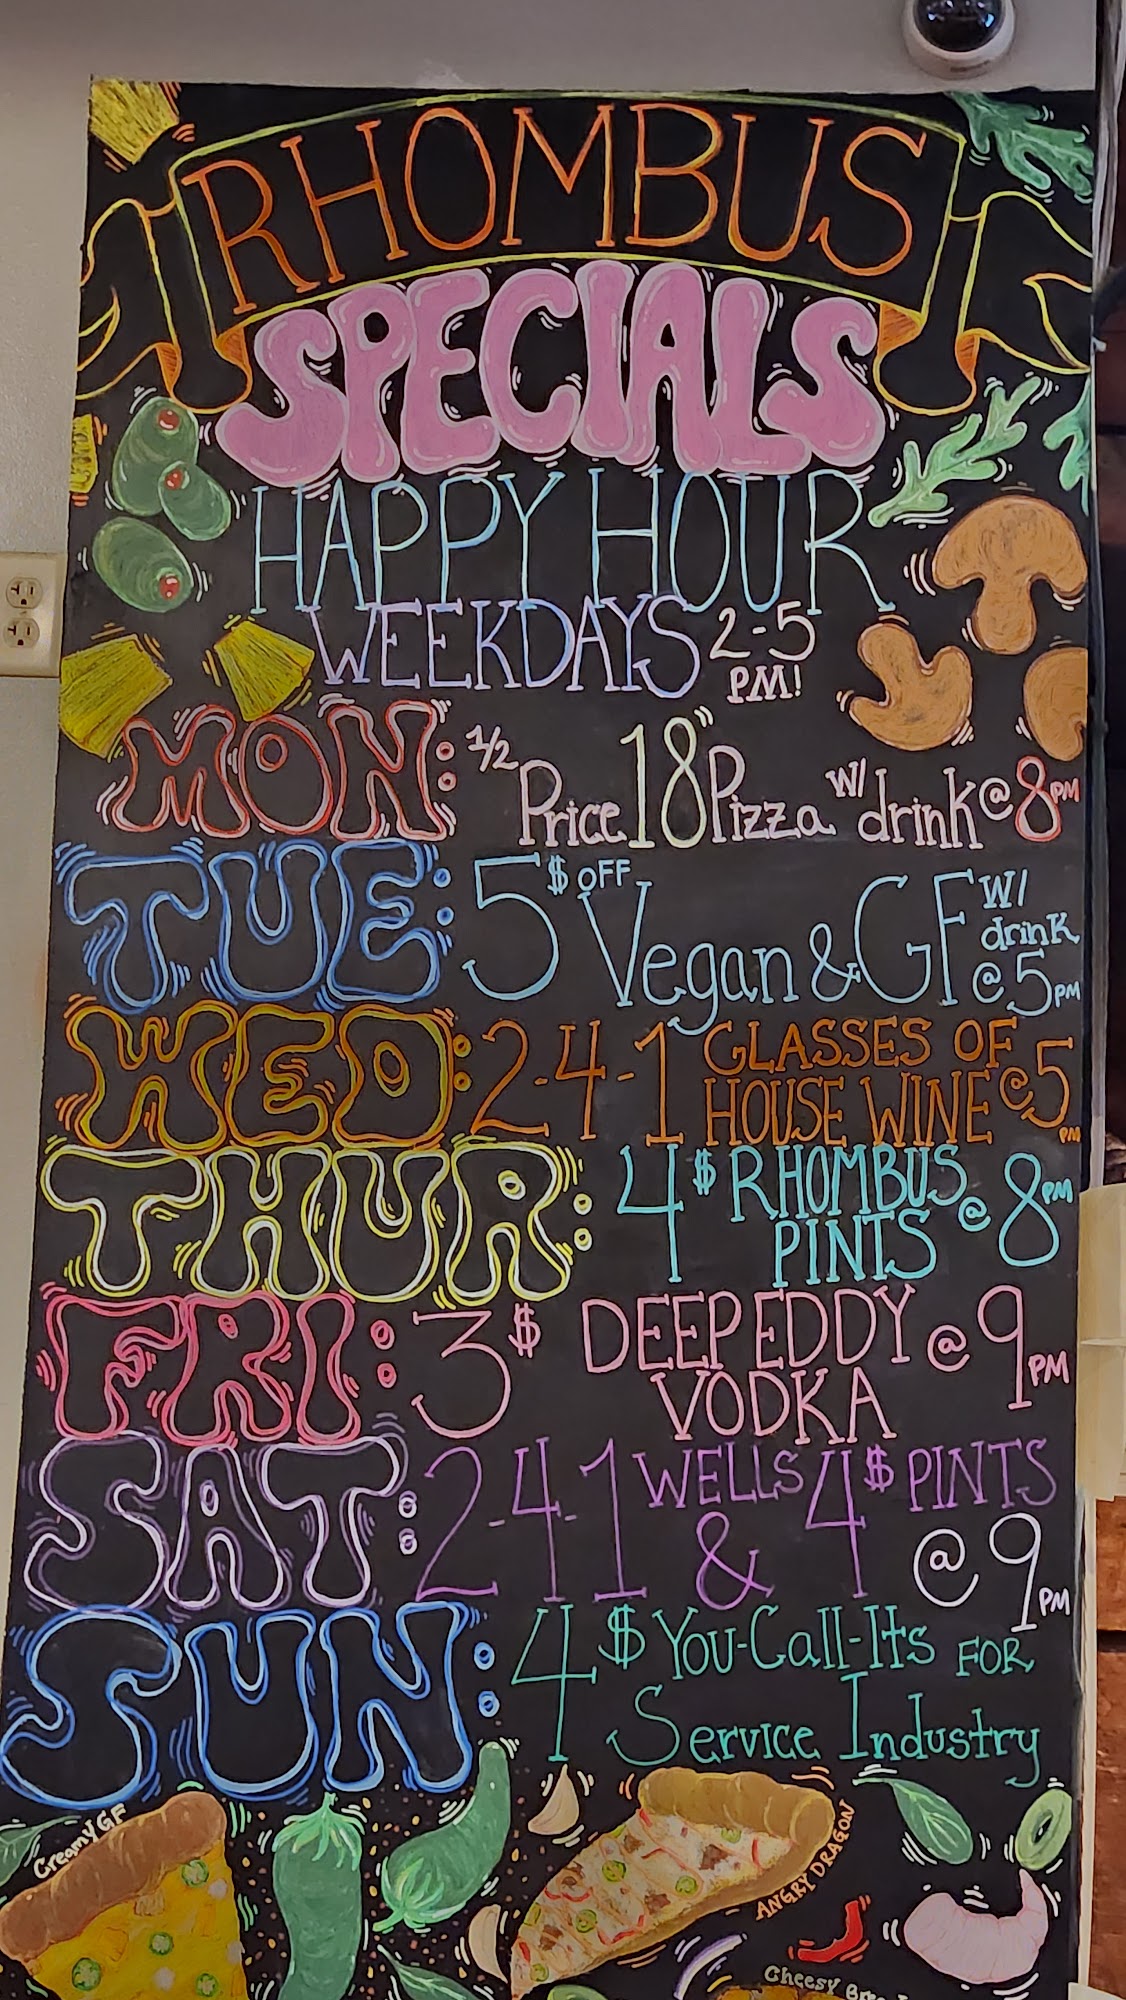 RHOMBUS
SPECIALS
HAPPY HOUR
WEEKDAYS 2-5 PM!
MON: 1/2 Price 18" Pizza w/ drink @ 8PM
TUE: 5$ OFF Vegan & GF W/ drink @ 5PM
WED: 2-4-1 GLASSES OF HOUSE WINE @ 5PM
THUR: 4$ RHOMBUS PINTS @ 8PM
FRI: 3$ DEEP EDDY VODKA @ 9PM
SAT: 2-4-1 WELLS & 4$ PINTS @ 9PM
SUN: 4$ You-Call-Its FOR Service Industry
Creamy GF
ANGRY DRAGON
Cheesy